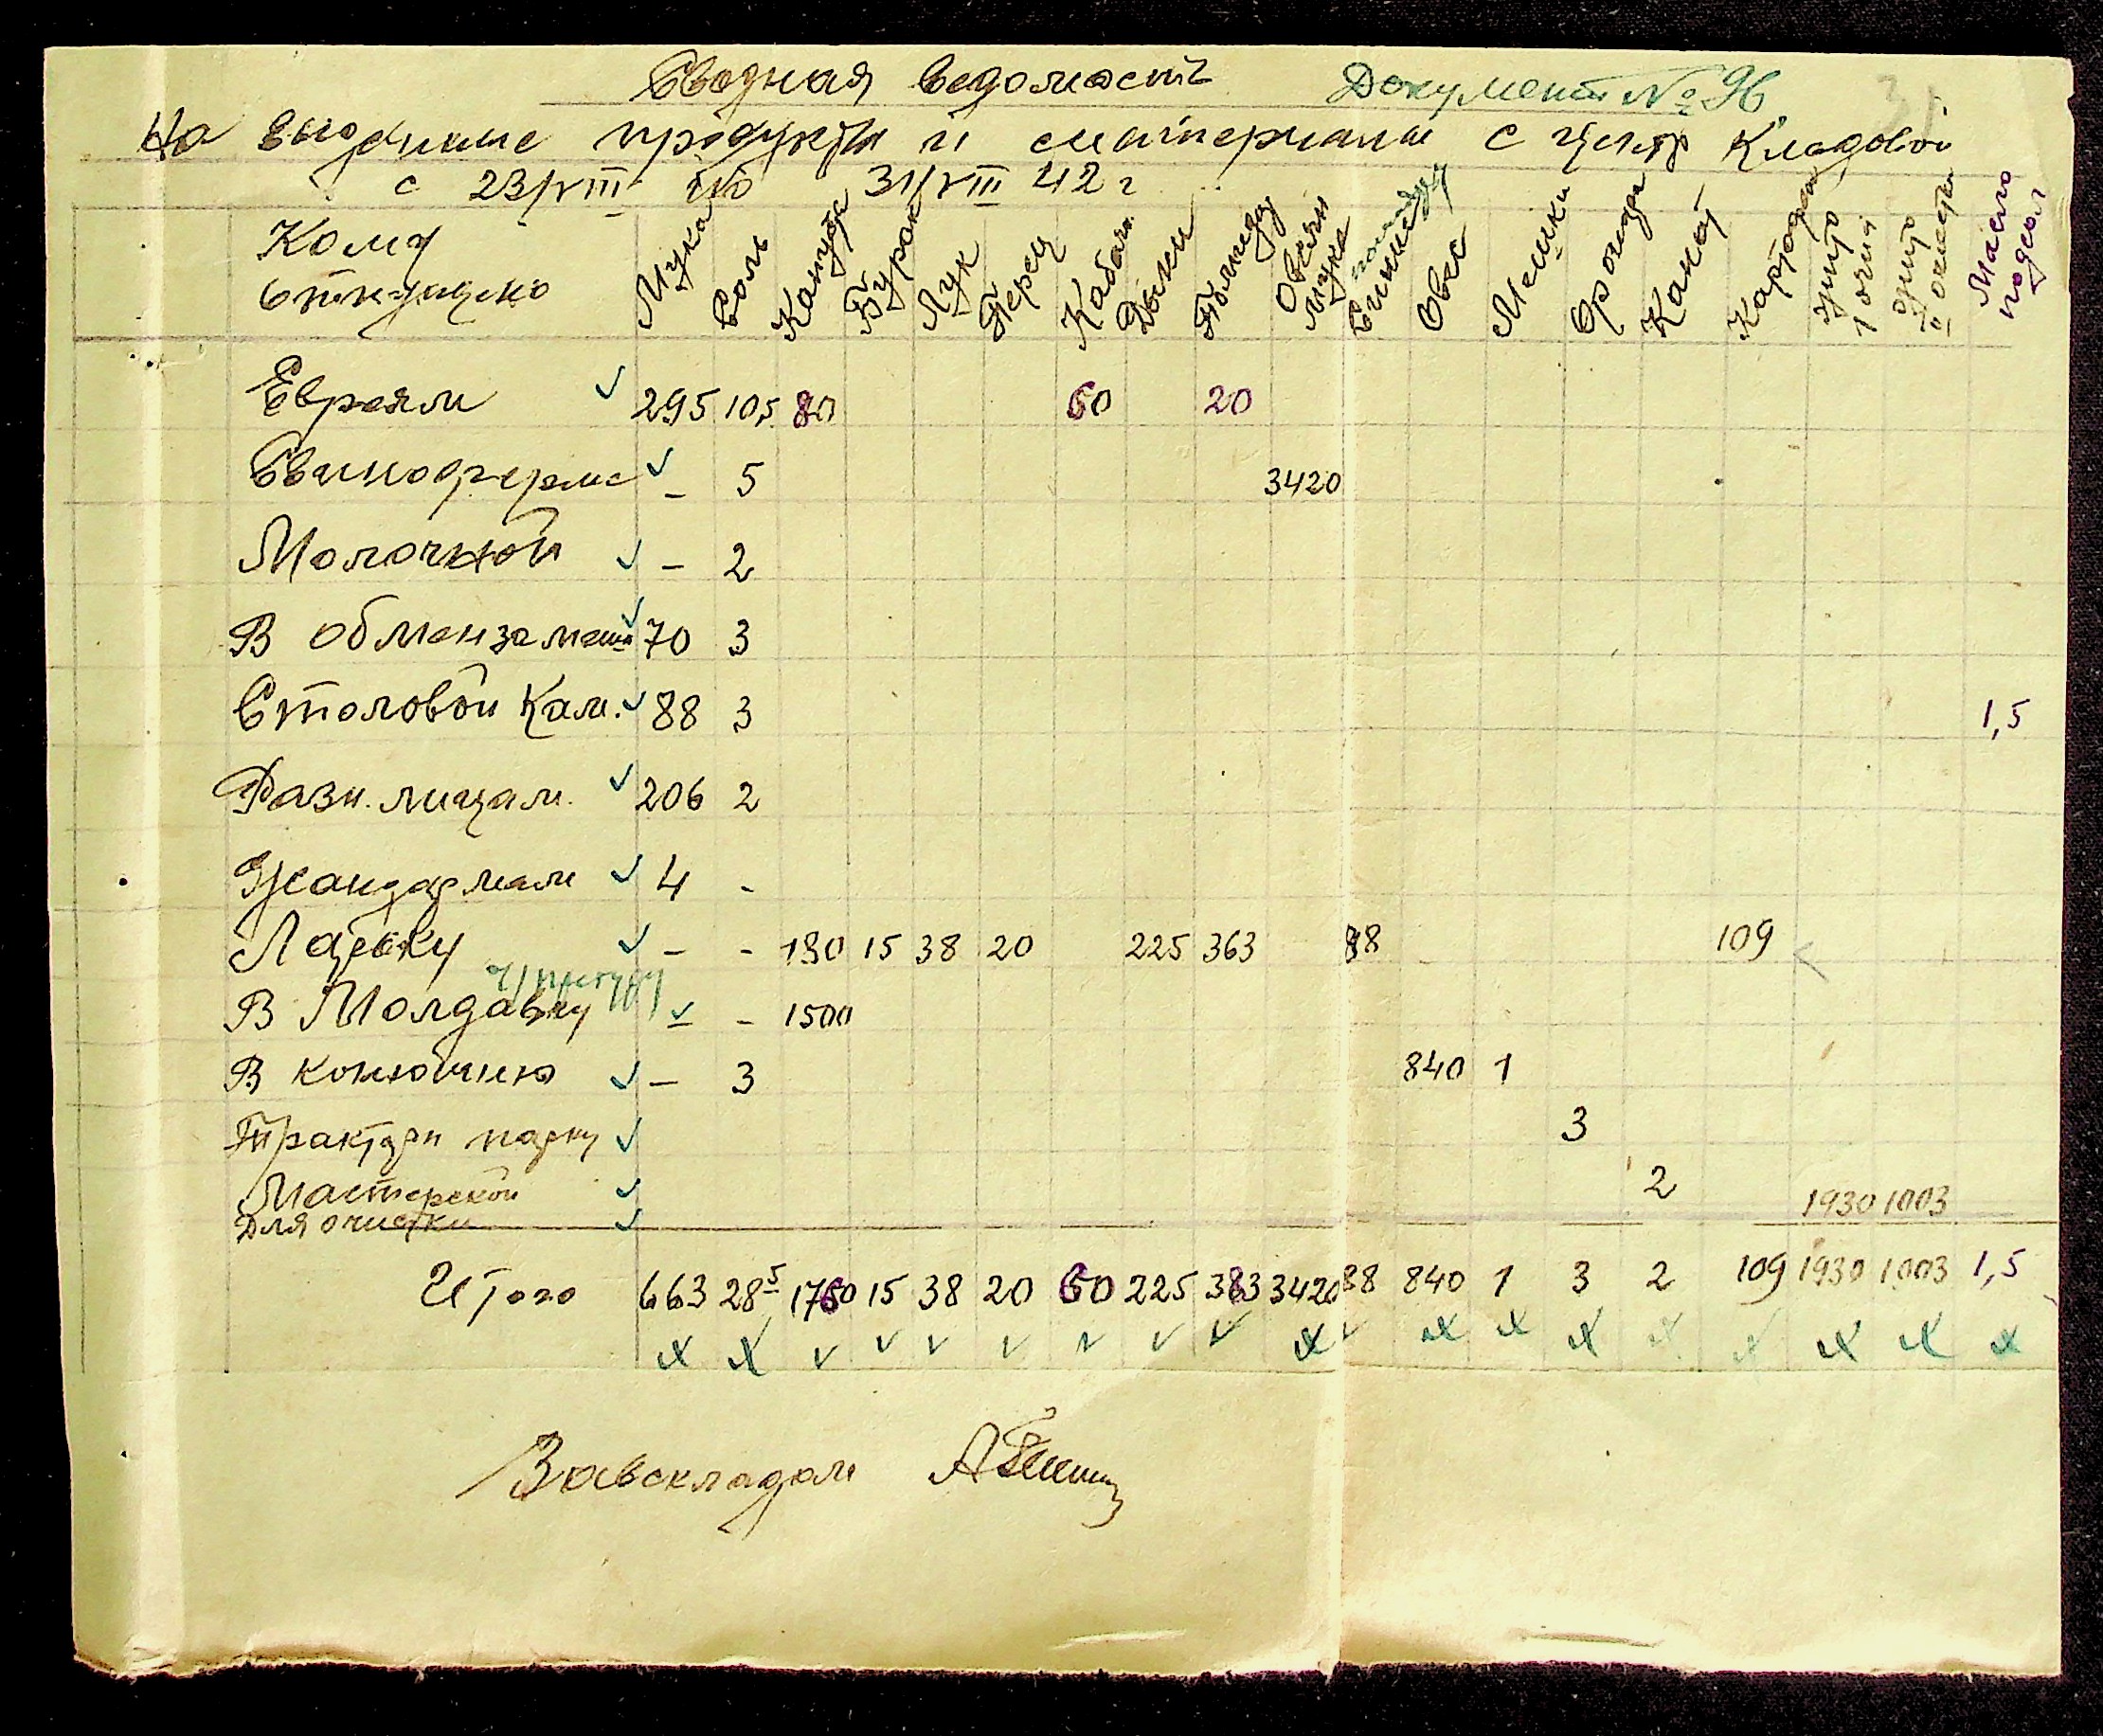 Сводная ведомость Документ № 96
На выданные продукты и материалы с центр кладовой
с 23/VIII по 31/VIII 42 г
Кому отпущено Мука Соль Капуста Бурак Лук Перец Кабачк Дыни Помидор Овсян мука Синие Овес Мешки Канат Картофель зито зито очистки Масло подсол
Евреям ✓ 295 105 80 60 20
Свиноферме ✓ – 5 3420
Молочной ✓ – 2
В обмен за меш ✓ 70 3
Столовой Кам. ✓ 88 3 1,5
Разн. лицам. ✓ 206 2
Жандармам ✓ 4 -
Ларьку ✓ – - 190 15 38 20 225 363 88 109
В Молдавку ✓ – - 1500
В конюшню ✓ – 3 840 1
Трактарн парку ✓ 3
Мастерской ✓ 2
Для очистки ✓ 1930 1003
Итого 663 28⁵ 1760 15 38 20 60 225 383 3420 88 840 1 3 2 109 1930 1003 1,5
Завскладом